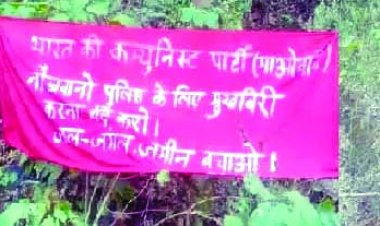 भारत की कम्युनिस्ट पार्टी (माओवादी)
नौजवानो पुलिस के लिए मुखबिरी
करना बंद करो।
जल-जंगल जमीन बचाओ!